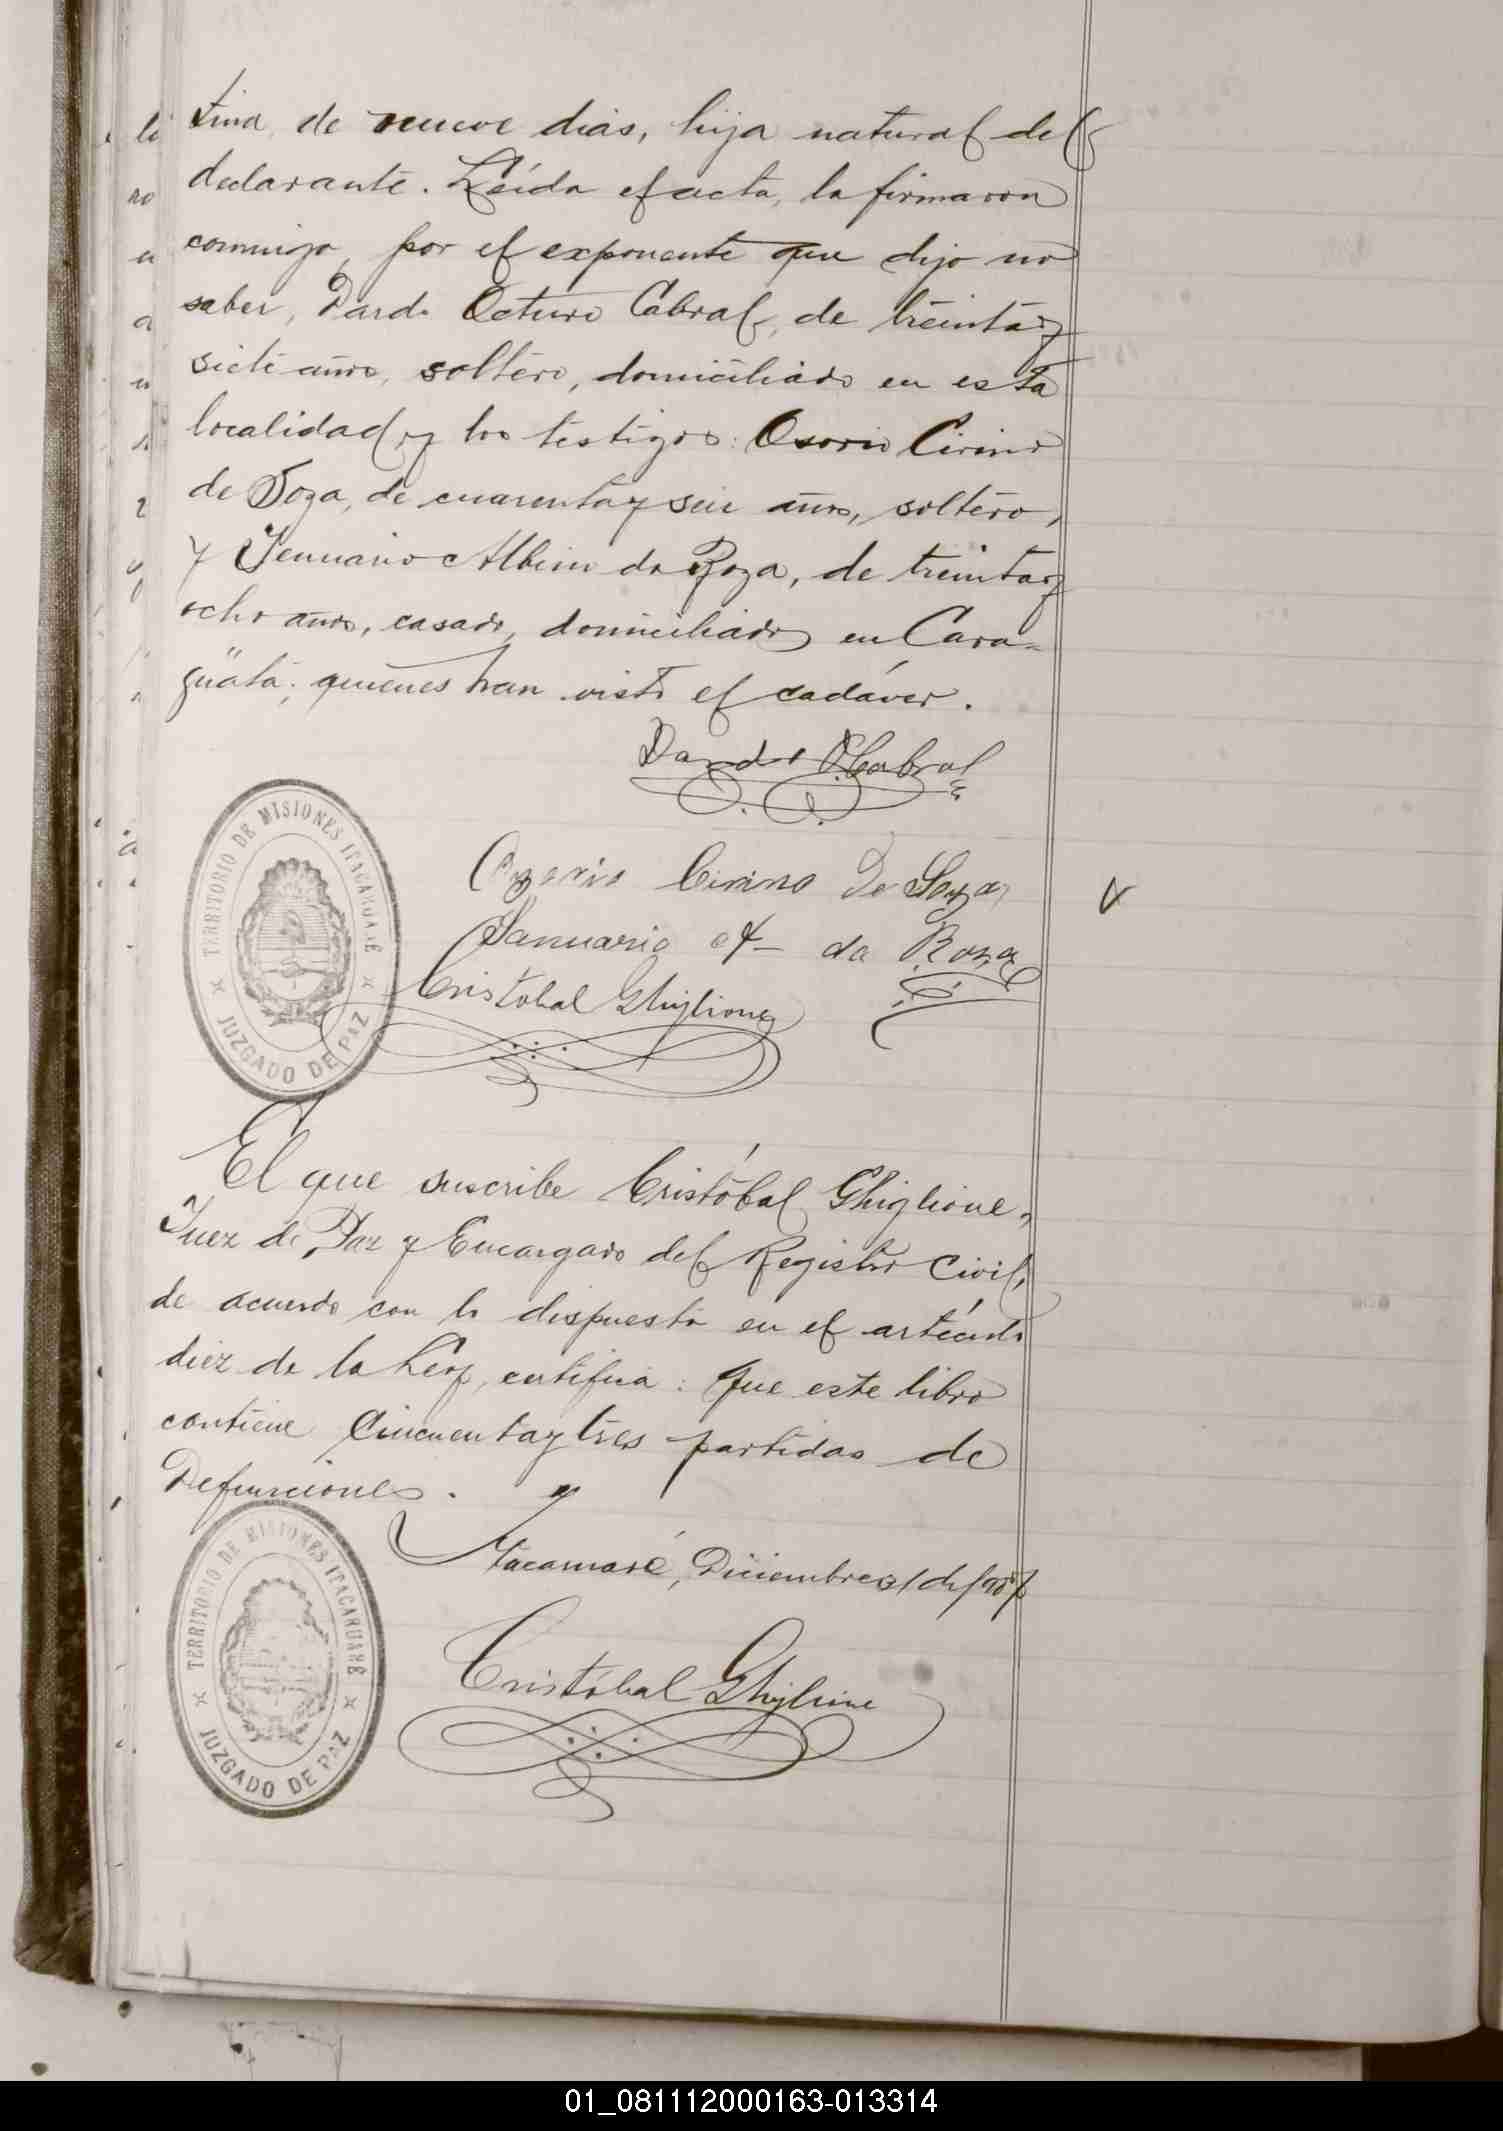 tina, de nueve dias, hija natural del
declarante. Leída el acta, la firmaron
conmigo, por el exponente que dijo no
saber, Dardo Octavo Cabral, de treinta y
siete años, soltero, domiciliado en esta
localidad, y los testigos: Osorio Cirino
de Soza, de cuarenta y seis años, soltero,
y Jenuario Albino da Roza, de treinta y
ocho años, casado, domiciliados en Cara-
guatá; quienes han visto el cadáver.
Dardo O. Cabral
TERRITORIO DE MISIONES ITACARUARÉ
JUZGADO DE PAZ
Ozorio Cirino De Souza
Januario A da Roza
Cristobal Ghiglione
El que suscribe Cristóbal Ghiglione,
Juez de Paz y Encargado del Registro Civil,
de acuerdo con lo dispuesto en el artículo
diez de la Ley, certifica: Que este libro
contiene cincuenta y tres partidas de
Defunciones.
TERRITORIO DE MISIONES ITACARUARÉ
JUZGADO DE PAZ
Diciembre 31 de
Cristóbal Ghiglione
01_081112000163-013314